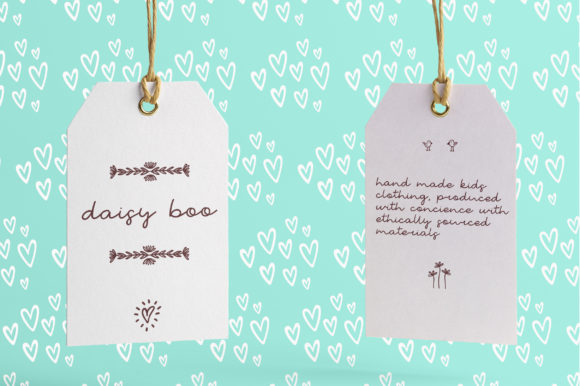 daisy boo
hand made kids
clothing, produced
with concience with
ethically sourced
materials